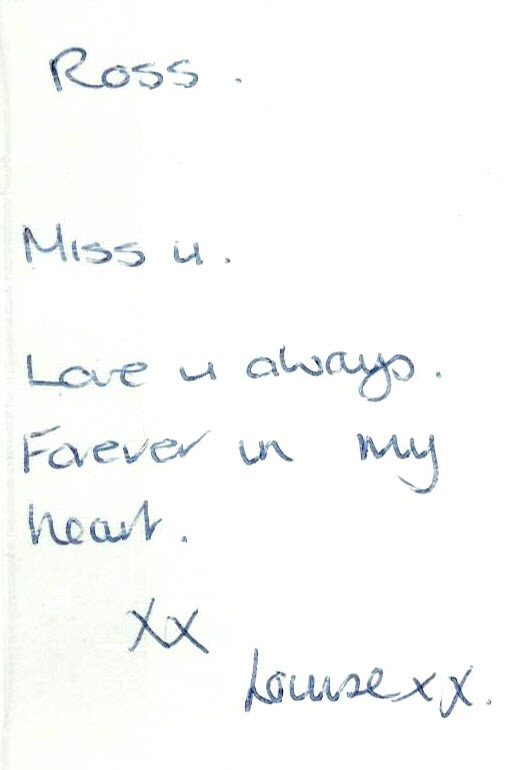 Ross.
Miss u.
Love u always.
Forever in my
heart.
xx
Louise xx.